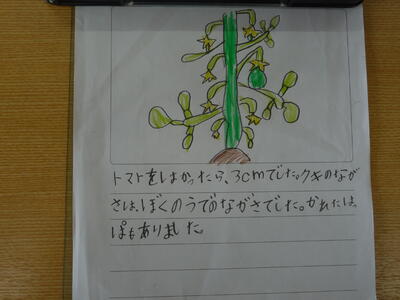 トマトをはかったら、3cmでした。クキのなが
さは、ぼくのうでのながさでした。かれたはっ
ぱもありました。